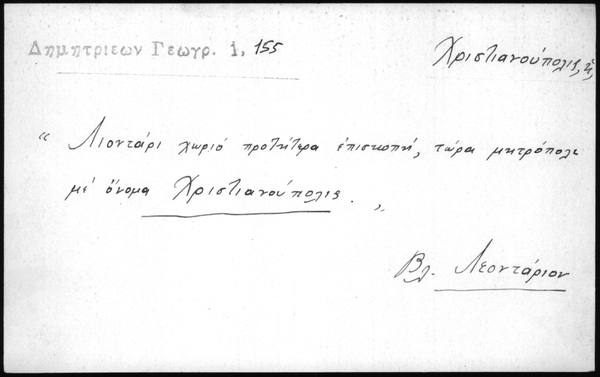 Δημητριεων Γεωγρ. 1, 155
Χριστιανούπολις, ἡ,
" Λιοντάρι χωριό προτήτερα ἐπισκοπή, τώρα μητρόπολι
μέ ὄνομα Χριστιανούπολις. „
Βλ. Λεοντάριον